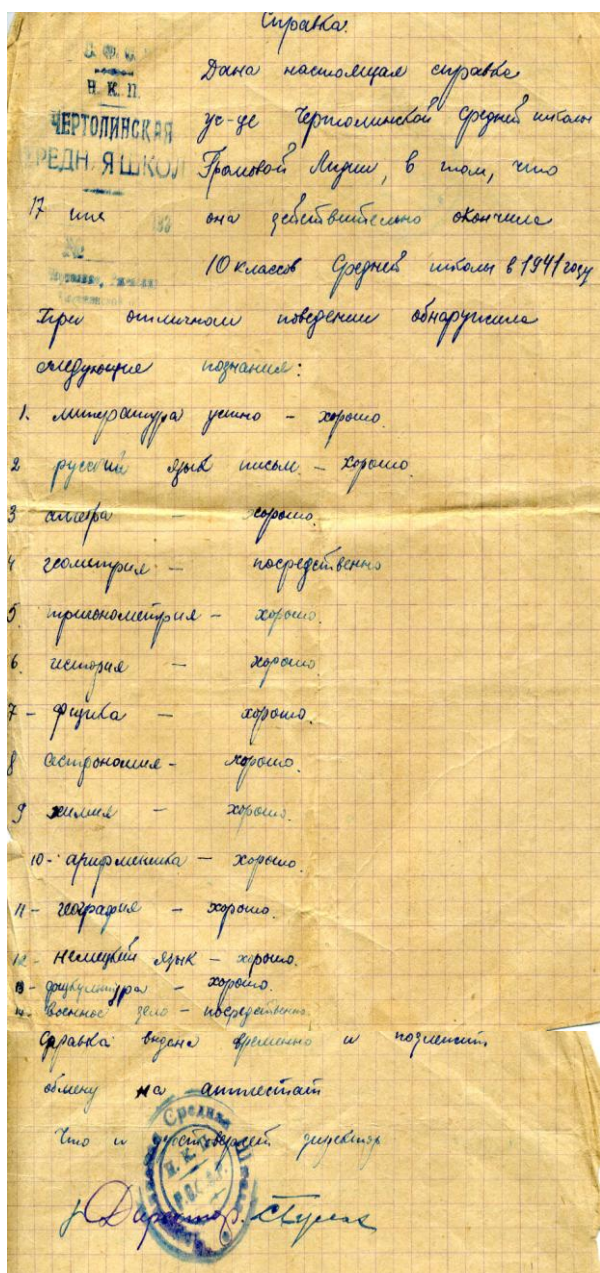 Справка.
Н.К.П.
ЧЕРТОЛИНСКАЯ
СРЕДНЯЯ ШКОЛ
Дана настоящая справка
уч-це Чертолинской средней школы
Громовой Лидии, в том, что
17
она действительно окончила
№
10 классов средней школы в 1941 году
При отличном поведении обнаружила
следующие познания:
1. литература устно – хорошо.
2 русский язык письм. – хорошо.
3 алгебра – хорошо.
4 геометрия – посредственно
5. тригонометрия – хорошо.
6. история – хорошо
7 – физика – хорошо.
8 астрономия – хорошо.
9 химия – хорошо.
10 – арифметика – хорошо.
11 – география – хорошо.
12 – немецкий язык – хорошо.
13 – физкультура – хорошо.
14 – военное дело – посредственно.
Справка выдана временно и подлежит
обмену на аттестат
Что и удостоверяет директор
Средняя
Н.К.П.
Р.С.Ф.С.Р.
Директор.